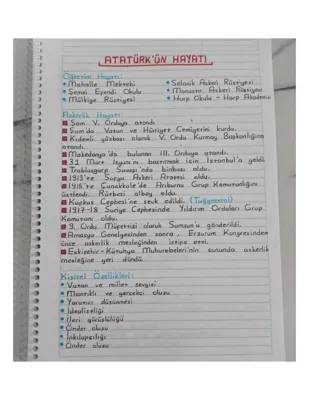 ATATÜRK'ÜN HAYATI
Öğrenim Hayatı:
Mahalle Mektebi
Selanik Askeri Rüştiyesi
Şemsi Efendi Okulu
Manastır Askeri
Mülkiye Rüştiyesi
Harp Okulu - Harp Akademi
Askerlik Hayatı:
Şam V. Orduya atandı
Şam'da Vatan ve Hürriyet Cemiyetini kurdu.
Kıdemli yüzbaşı olarak V. Ordu Kurmay Başkanlığına
atandı.
Makedonya'da bulunan III. Orduya atandı
31 Mart İsyanını bastırmak için İstanbul'a geldi
Trablusgarp Savaşı'nda binbaşı oldu.
1913'te Sofya Askeri Ataşesi oldu.
1915'te Çanakkale'de Arıburnu Grup Komutanlığını
üstlendi. Rütbesi albay oldu.
Kafkas Cephesi'ne sevk edildi. (Tuğgeneral)
1917-18 Suriye Cephesinde Yıldırım Orduları Grup
Komutanı oldu.
9. Ordu Müfettişi olarak Samsun'a gönderildi.
Amasya Genelgesinden sonra, Erzurum Kongresinden
önce askerlik mesleğinden istifa etti.
Eskişehir-Kütahya Muharebeleri'nin sonunda askerlik
mesleğine geri döndü
Kişisel Özellikleri:
Vatan ve millet sevgisi
Mantıklı ve gerçekçi oluşu
Yaratıcı düşünmesi
İdealistliği
İleri görüşlülüğü
Önder oluşu
İnkılapçılığı
Önder oluşu